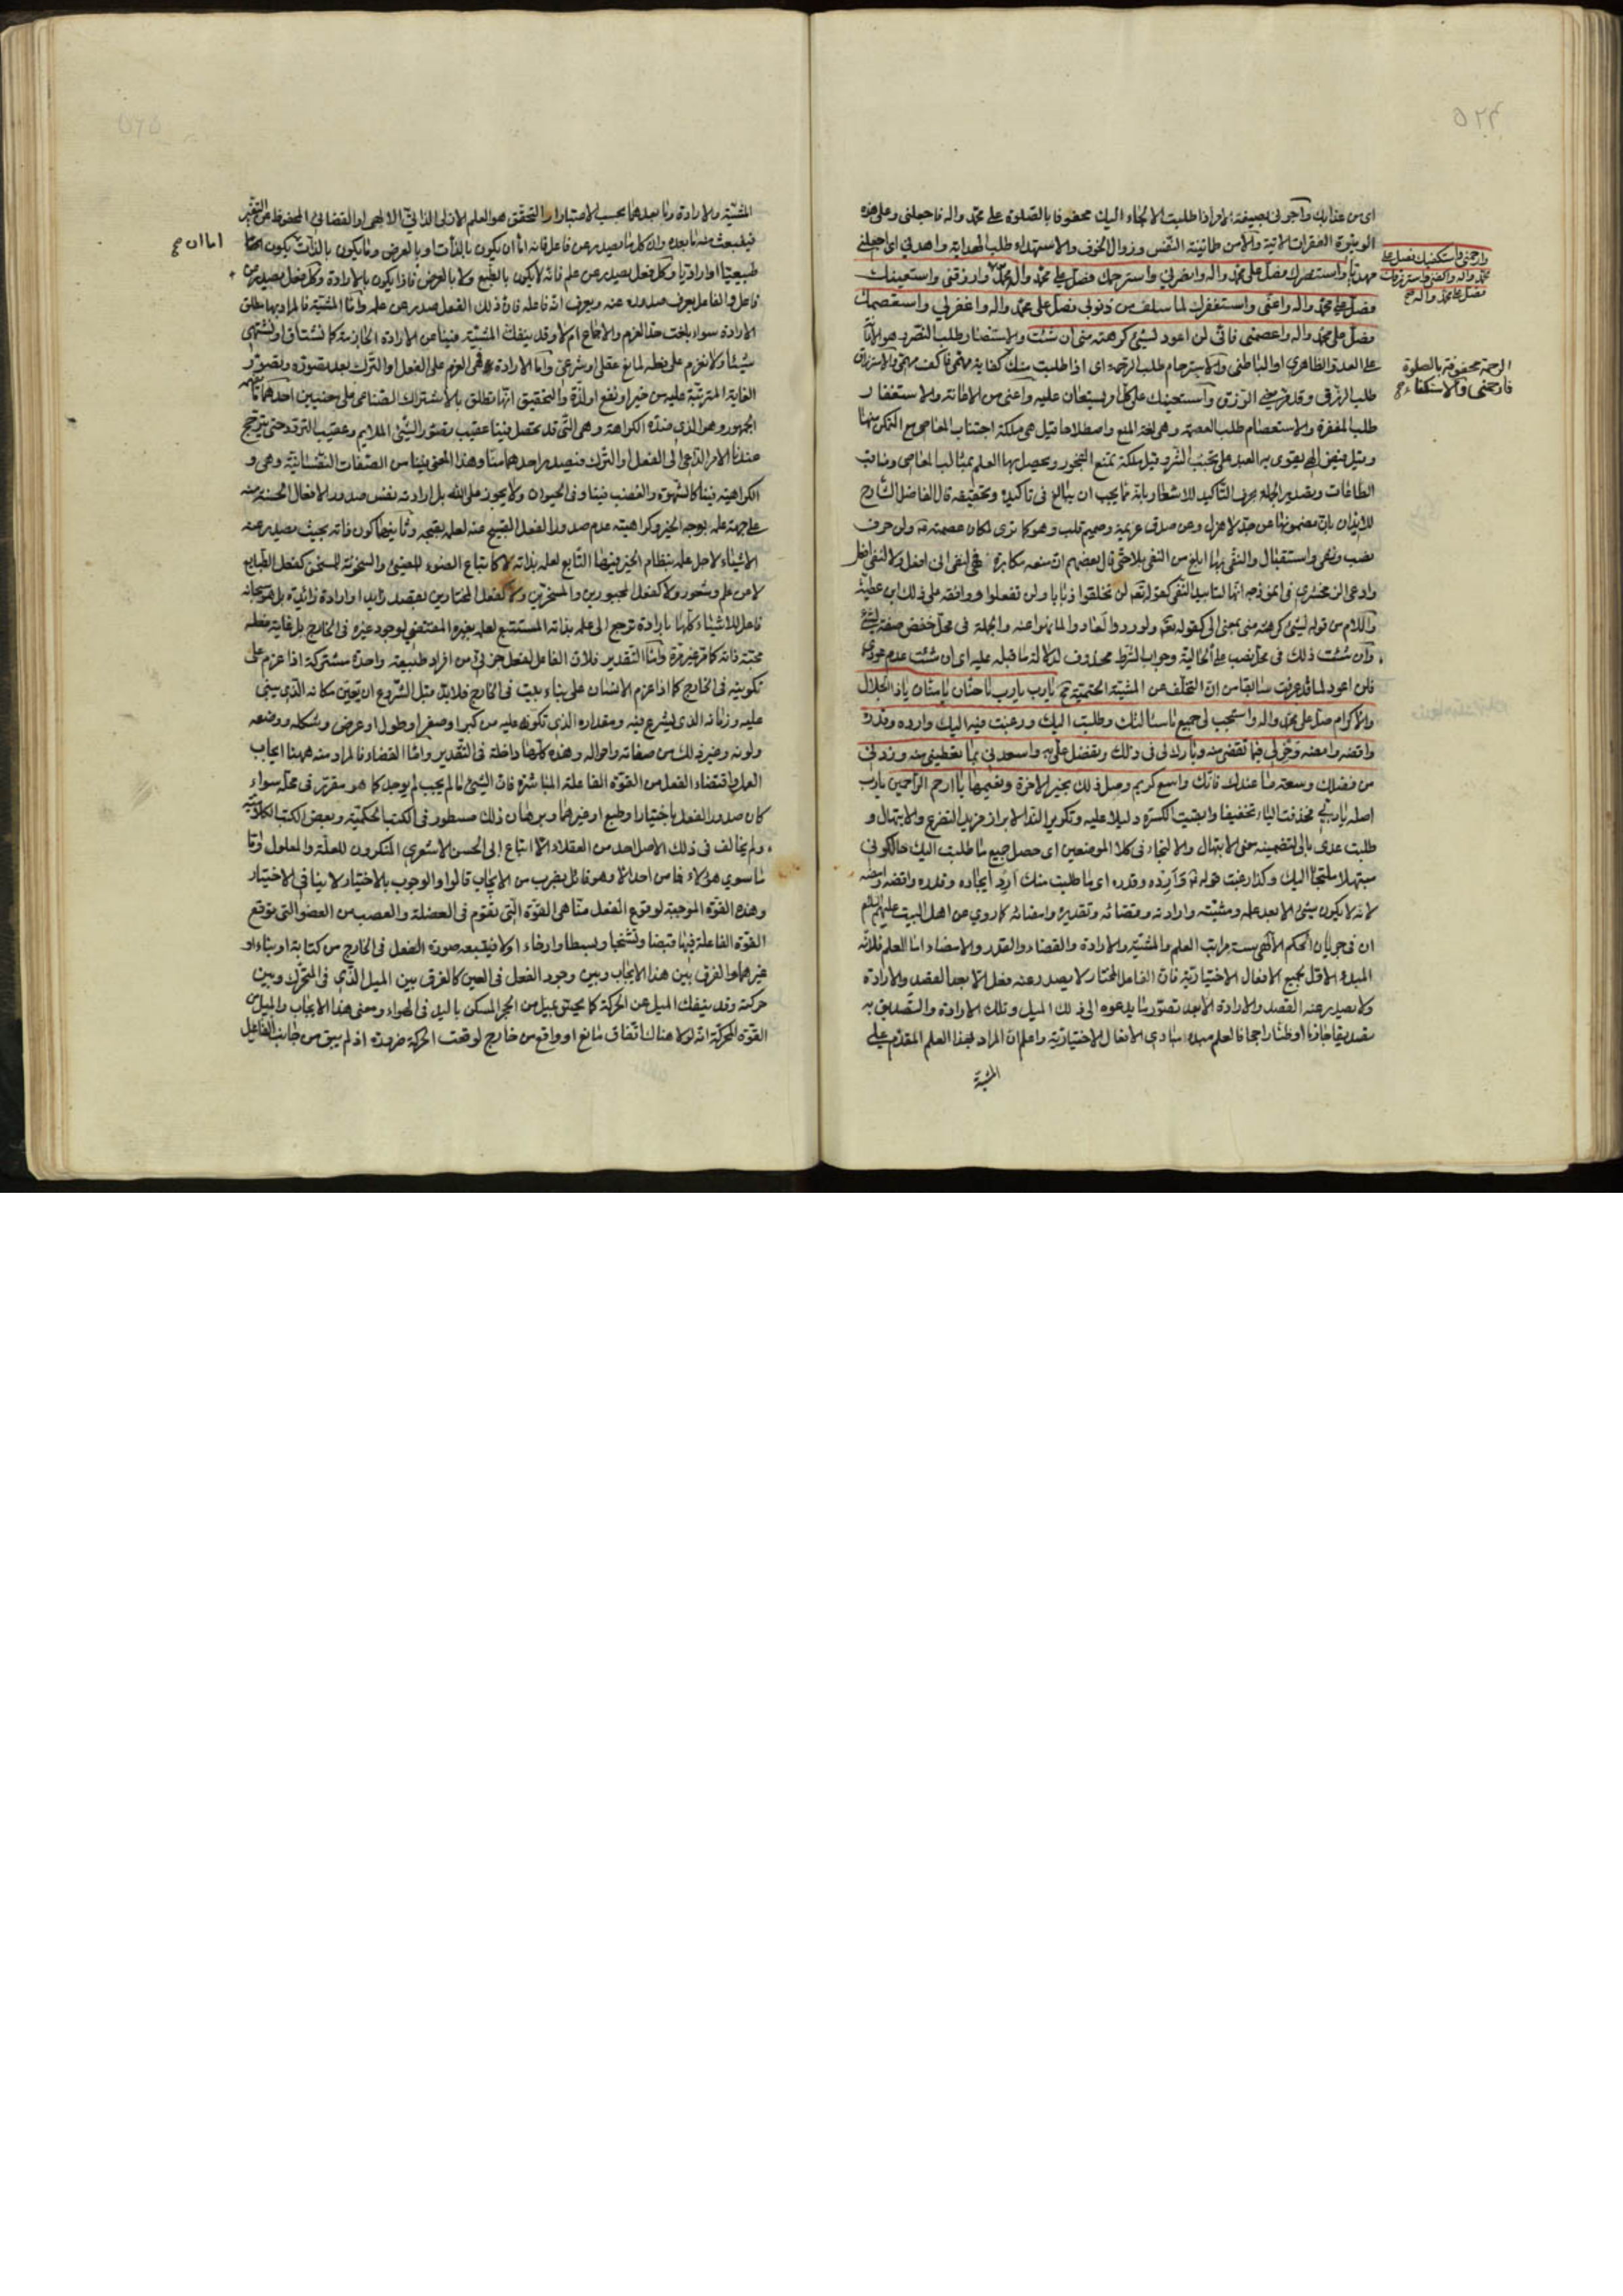 اى من عذابك وآجرنى بصيغة الامر اذا طلبت الالتجاء اليك محفوفا بالصلوة على محمد واله فاجعلنى وعلى هذه
الوتيرة الفقرات الاتية والامن طمانينة النفس وزوال الخوف والاستهداء طلب الهداية واهدنى اى اجعلنى
مهديا واستنصرك فصل على محمد واله وانصرنى واسترحمك فصل على محمد وال محمد وارزقنى واستعينك
وارحمنى واستكفيك فصل على
محمد واله واكفنى واسترزقك
فصل على محمد واله صح
فصل على محمد واله واعنى واستغفرك لما سلف من ذنوبى فصل على محمد واله واغفر لى واستعصمك
فصل على محمد واله واعصمنى فانى لن اعود لشئ كرهته منى ان شئت والاستنصار طلب النصر وهو الاعانة
على العدو الظاهرى او الباطنى والاسترحام طلب الرحمة اى اذا طلبت منك كفاية مهمى فاكف مهمى والاسترزاق
الرحمة محفوفة بالصلوة
فارحمنى والاستكفاء صح
طلب الرزق وقد مر معنى الرزق واستعينك على كل ويستعان عليه واعنى من الاعانة والاستغفار
طلب المغفرة والاستعصام طلب العصمة وهى لغة المنع واصطلاحا قيل هى ملكة اجتناب المعاصى مع التمكن منها
وقيل فيض الهى يقوى به العبد على تجنب الشر وقيل ملكة تمنع الفجور ويحصل بها العلم بمثالب المعاصى ومناقب
الطاعات وتصدير الجملة بحرف التاكيد للاشعار بانه مما يجب ان يبالغ فى تاكيده وتحقيقه قال الفاضل الشارح
للايذان بان مضمونها عن جد لا هزل وعن صدق عزيمة وصميم قلب وهو كما ترى لمكان عصمته ولن حرف
نصب ونفى واستقبال والنفى بها ابلغ من النفى بلا حتى قال بعضهم ان منعه مكابرة فهى لنفى انى افعل ولا لنفى افعل
وادعى الزمخشرى فى انموذجه انها لتابيد النفى كقوله تعالى لن يخلقوا ذبابا ولن تفعلوا ووافقه على ذلك ابن عطية
واللام من قوله لشئ كرهته منى بمعنى الى كقوله تعالى ولو ردوا لعادوا لما نهوا عنه والجملة فى محل خفض صفة لشئ
وان شئت ذلك فى محل نصب على الحالية وجواب الشرط محذوف لدلالة ما قبله عليه اى ان شئت عدم عودى
فلن اعود لما قد عرفت سابقا من ان التخلف عن المشية الحتمية يا رب يا رب يا حنان يا منان يا ذا الجلال
والاكرام صل على محمد واله واستجب لى جميع ما سالتك وطلبت اليك ورغبت فيه اليك وارده وقدره
واقضه وامضه وخر لى فيما تقضى منه وبارك لى فى ذلك وتفضل على به واسعدنى بما تعطينى منه وزدنى
من فضلك وسعة ما عندك فانك واسع كريم وصل ذلك بخير الاخرة ونعيمها يا ارحم الراحمين يا رب
اصله يا ربى فحذفت الياء تخفيفا وابقيت الكسرة دليلا عليه وتكرير النداء لابراز مزيد التضرع والابتهال و
طلبت عدى بالى لتضمينه معنى الابتهال والالتجاء فى كلا الموضعين اى حصل جميع ما طلبت اليك حالكونى
مبتهلا ملتجا اليك وكذا رغبت قوله وارده وقدره اى ما طلبت منك ارد ايجاده وقدره واقضه وامضه
لانه لا يكون شئ الا بعد علمه ومشيته وارادته وقضائه وتقديره وامضائه كما روى عن اهل البيت عليهم السلام
ان فى جريان الحكم الالهى ست مراتب العلم والمشية والارادة والقضاء والقدر والامضاء اما العلم فلانه
المبدء الاول لجميع الافعال الاختيارية فان الفاعل المختار لا يصدر عنه فعل الا بعد القصد والارادة
ولا يصدر عنه القصد والارادة الا بعد تصور ما يدعوه الى ذلك الميل وتلك الارادة والتصديق به
تصديقا جازما او ظنا راجحا فالعلم مبدء مبادى الافعال الاختيارية واعلم ان المراد بهذا العلم المقدم على
المشية
المشية والارادة وما بعدهما بحسب الاعتبار او التحقق هو العلم الازلى الذاتى الالهى او القضائى المحفوظ عن التغير
فينبعث منه ما بعده وان كل ما يصدر عن فاعل فانه اما ان يكون بالذات او بالعرض وما يكون بالذات يكون اما
اما ان صح
طبيعيا او اراديا وكل فعل يصدر عن علم فانه لا يكون بالطبع ولا بالعرض فاذا يكون بالارادة وكل فعل يصدر عن
فاعل والفاعل يعرف صدوره عنه ويعرف انه فاعله فان ذلك الفعل صدر عن علمه واما المشية فالمراد بها مطلق
الارادة سواء بلغت حد العزم والاجماع ام لا وقد ينفك المشية فينا عن الارادة الجازمة كما نشتاق او نشتهى
شيئا ولا نعزم على فعله لمانع عقلى او شرعى واما الارادة فهى العزم على الفعل او الترك بعد تصوره وتصور
الغاية المترتبة عليه من خير او نفع او لذة والتحقيق انها تطلق بالاشتراك الصناعى على معنيين احدهما ما يفهمه
الجمهور وهو الذى ضده الكراهة وهى التى قد تحصل فينا عقيب تصور الشئ الملايم وعقيب التردد حتى يترجح
عندنا الامر الداعى الى الفعل او الترك فيصدر احدهما منا وهذا المعنى فينا من الصفات النفسانية وهى و
الكراهية فينا كالشهوة والغضب فينا وفى الحيوان ولا يجوز على الله بل ارادته نفس صدور الافعال الحسنة منه
على جهة علمه بوجه الخير وكراهيته عدم صدور الفعل القبيح منه لعلمه بقبحه وثانيهما كون ذاته بحيث يصدر عنه
الاشياء لاجل علمه بنظام الخير فيها التابع لعلمه بذاته لا كاتباع الضوء للمضئ والسخونة للمسخن كفعل الطبايع
لا عن علم وشعور ولا كفعل المجبورين والمسخرين ولا كفعل المختارين بقصد زايد او ارادة زائدة بل هو سبحانه
فاعل للاشياء كلها بارادة ترجع الى علمه بذاته المستتبع لعلمه بغيره المقتضى لوجود غيره فى الخارج بل غاية فعله
محبة ذاته كما مر غير مرة واما التقدير فلان الفاعل لفعل جزئى من افراد طبيعة واحدة مشتركة اذا عزم على
تكوينه فى الخارج كما اذا عزم الانسان على بناء بيت فى الخارج فلابد قبل الشروع ان يتعين مكانه الذى يبنى
عليه وزمانه الذى يشرع فيه ومقداره الذى تكونه عليه من كبر او صغر او طول او عرض وشكله ووضعه
ولونه وغير ذلك من صفاته واحواله وهذه كلها داخلة فى التقدير واما القضاء فالمراد منه ههنا ايجاب
العمل واقتضاء الفعل من القوة الفاعلة المباشرة فان الشئ ما لم يجب لم يوجد كما هو مقرر فى محله سواء
كان صدور الفعل باختيار او طبع او غيرهما وبرهان ذلك مسطور فى الكتب الحكمية وبعض الكتب الكلامية
ولم يخالف فى ذلك الاصل احد من العقلاء الا اتباع ابى الحسن الاشعرى المنكرون للعلة والمعلول واما
ما سوى هؤلاء فما من احد الا وهو قائل بضرب من الايجاب قالوا والوجوب بالاختيار لا ينافى الاختيار
وهذه القوة الموجبة لوقوع الفعل منا هى القوة التى تقوم فى العضلة والعصب من العضو التى توقع
القوة الفاعلة فيها قبضا وتشنجا وبسطا وارخاء اولا فيتبعه صورة الفعل فى الخارج من كتابة او بناء او
غيرهما والفرق بين هذا الايجاب وبين وجود الفعل فى العين كالفرق بين الميل الذى فى المتحرك وبين
حركته وقد ينفك الميل عن الحركة كما يحس بميل من الحجر المسكن باليد فى الهواء ومعنى هذا الايجاب والميل من
القوة المحركة انه لولا هناك اتفاق مانع او واقع من خارج لوقعت الحركة ضرورة اذ لم يبق من جانب الفاعل